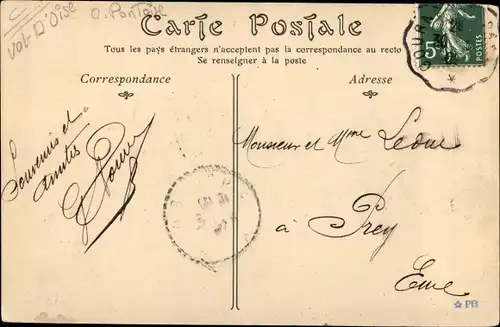 Val D'Oise
Carte Postale
Tous les pays étrangers n'acceptent pas la correspondance au recto
Se renseigner à la poste
Correspondance
Adresse
5
POSTES
Souvenirs et
amitiés
Monsieur et Mme Leduc
à Prey
Eure
PB